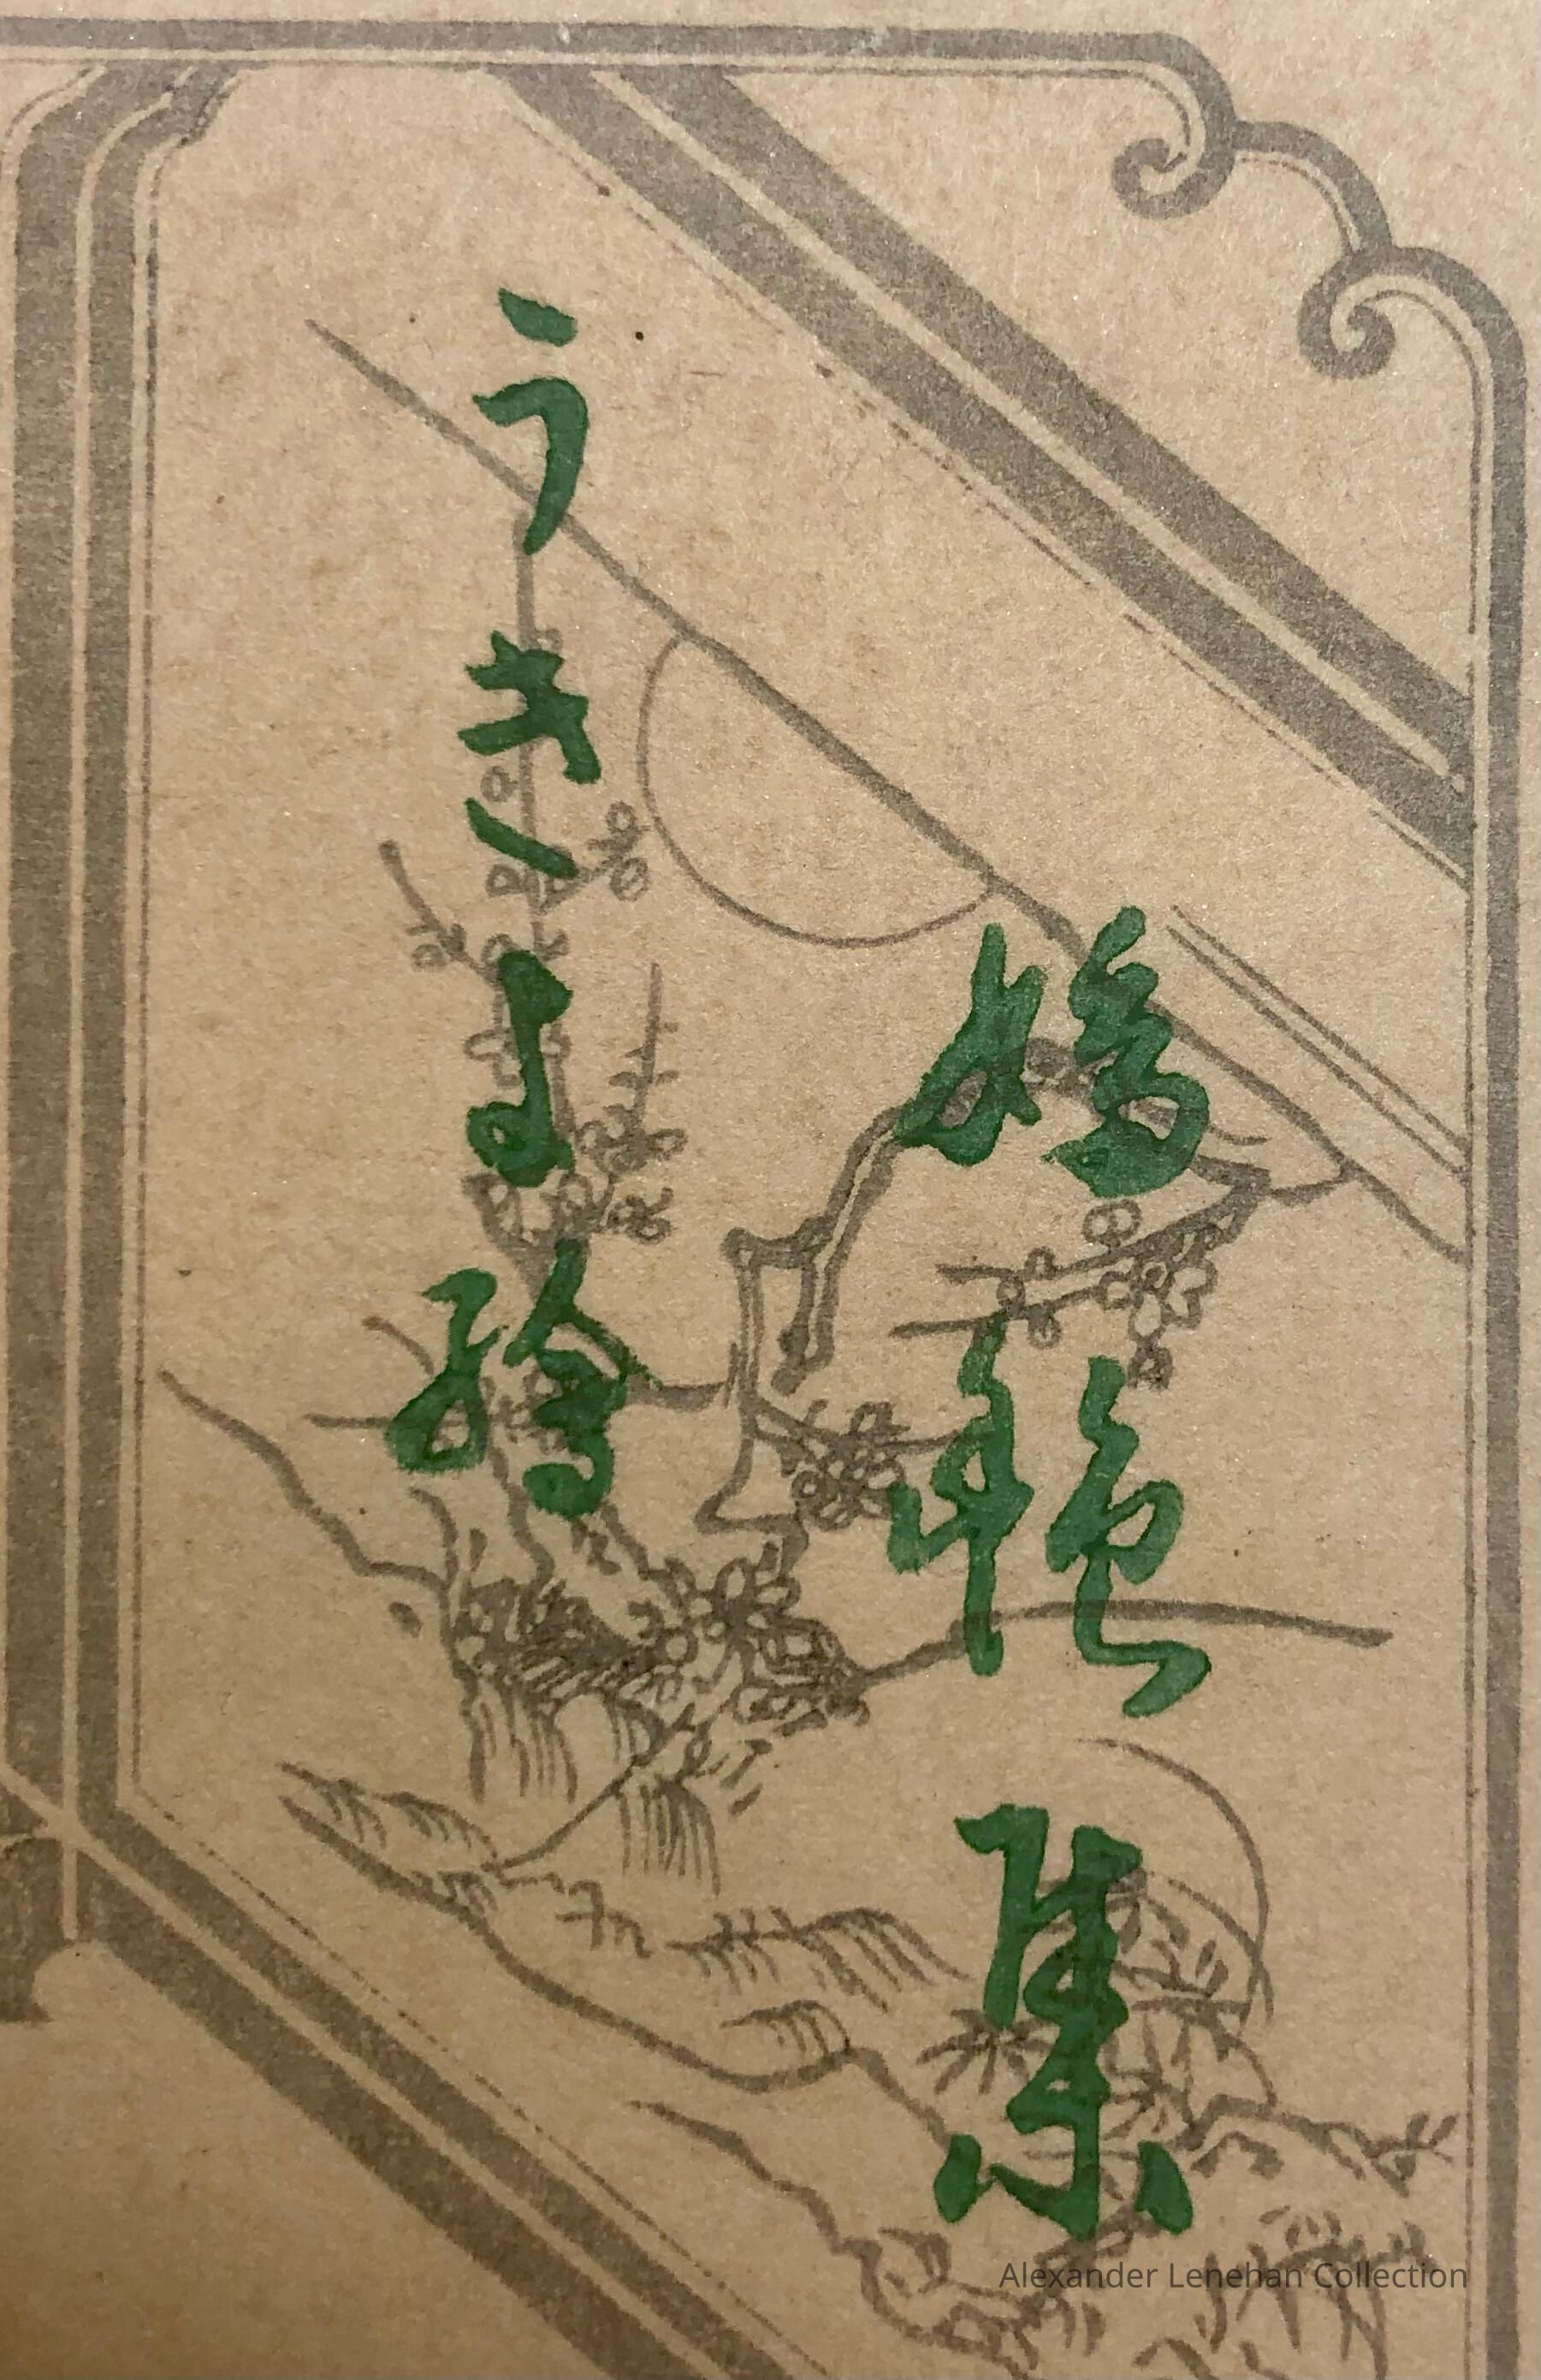 嬌艶集
うきよ繪
Alexander Lenehan Collection